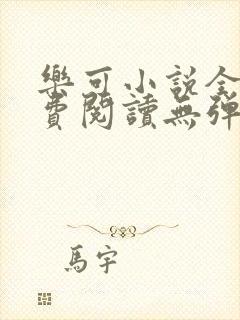 樂可小說全
費閱讀無彈
馬宇